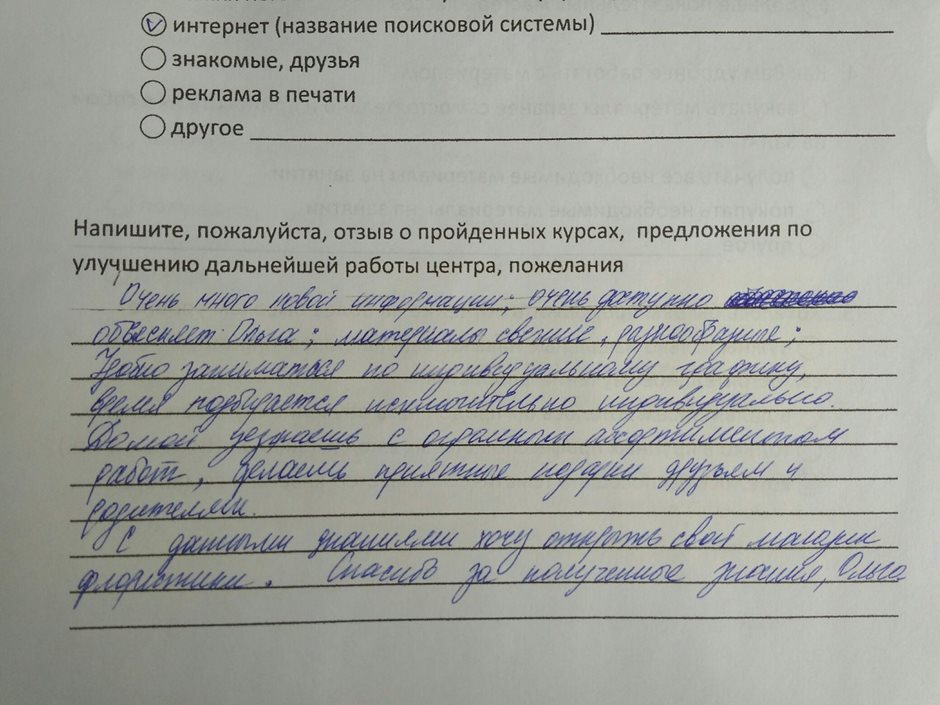 интернет (название поисковой системы)
знакомые, друзья
реклама в печати
другое
Напишите, пожалуйста, отзыв о пройденных курсах, предложения по
улучшению дальнейшей работы центра, пожелания
Очень много новой информации; очень доступно
объесняет Ольга; материалы свежие, разнообразные;
Удобно заниматься по индивидуальному графику,
время подбирается исключительно индивидуально.
Домой уезжаешь с огромным ассортиментом
работ, делаешь приятные подарки друзьям и
родителям.
С данными знаниями хочу открыть свой магазин
флористики. Спасибо за полученные знания, Ольга